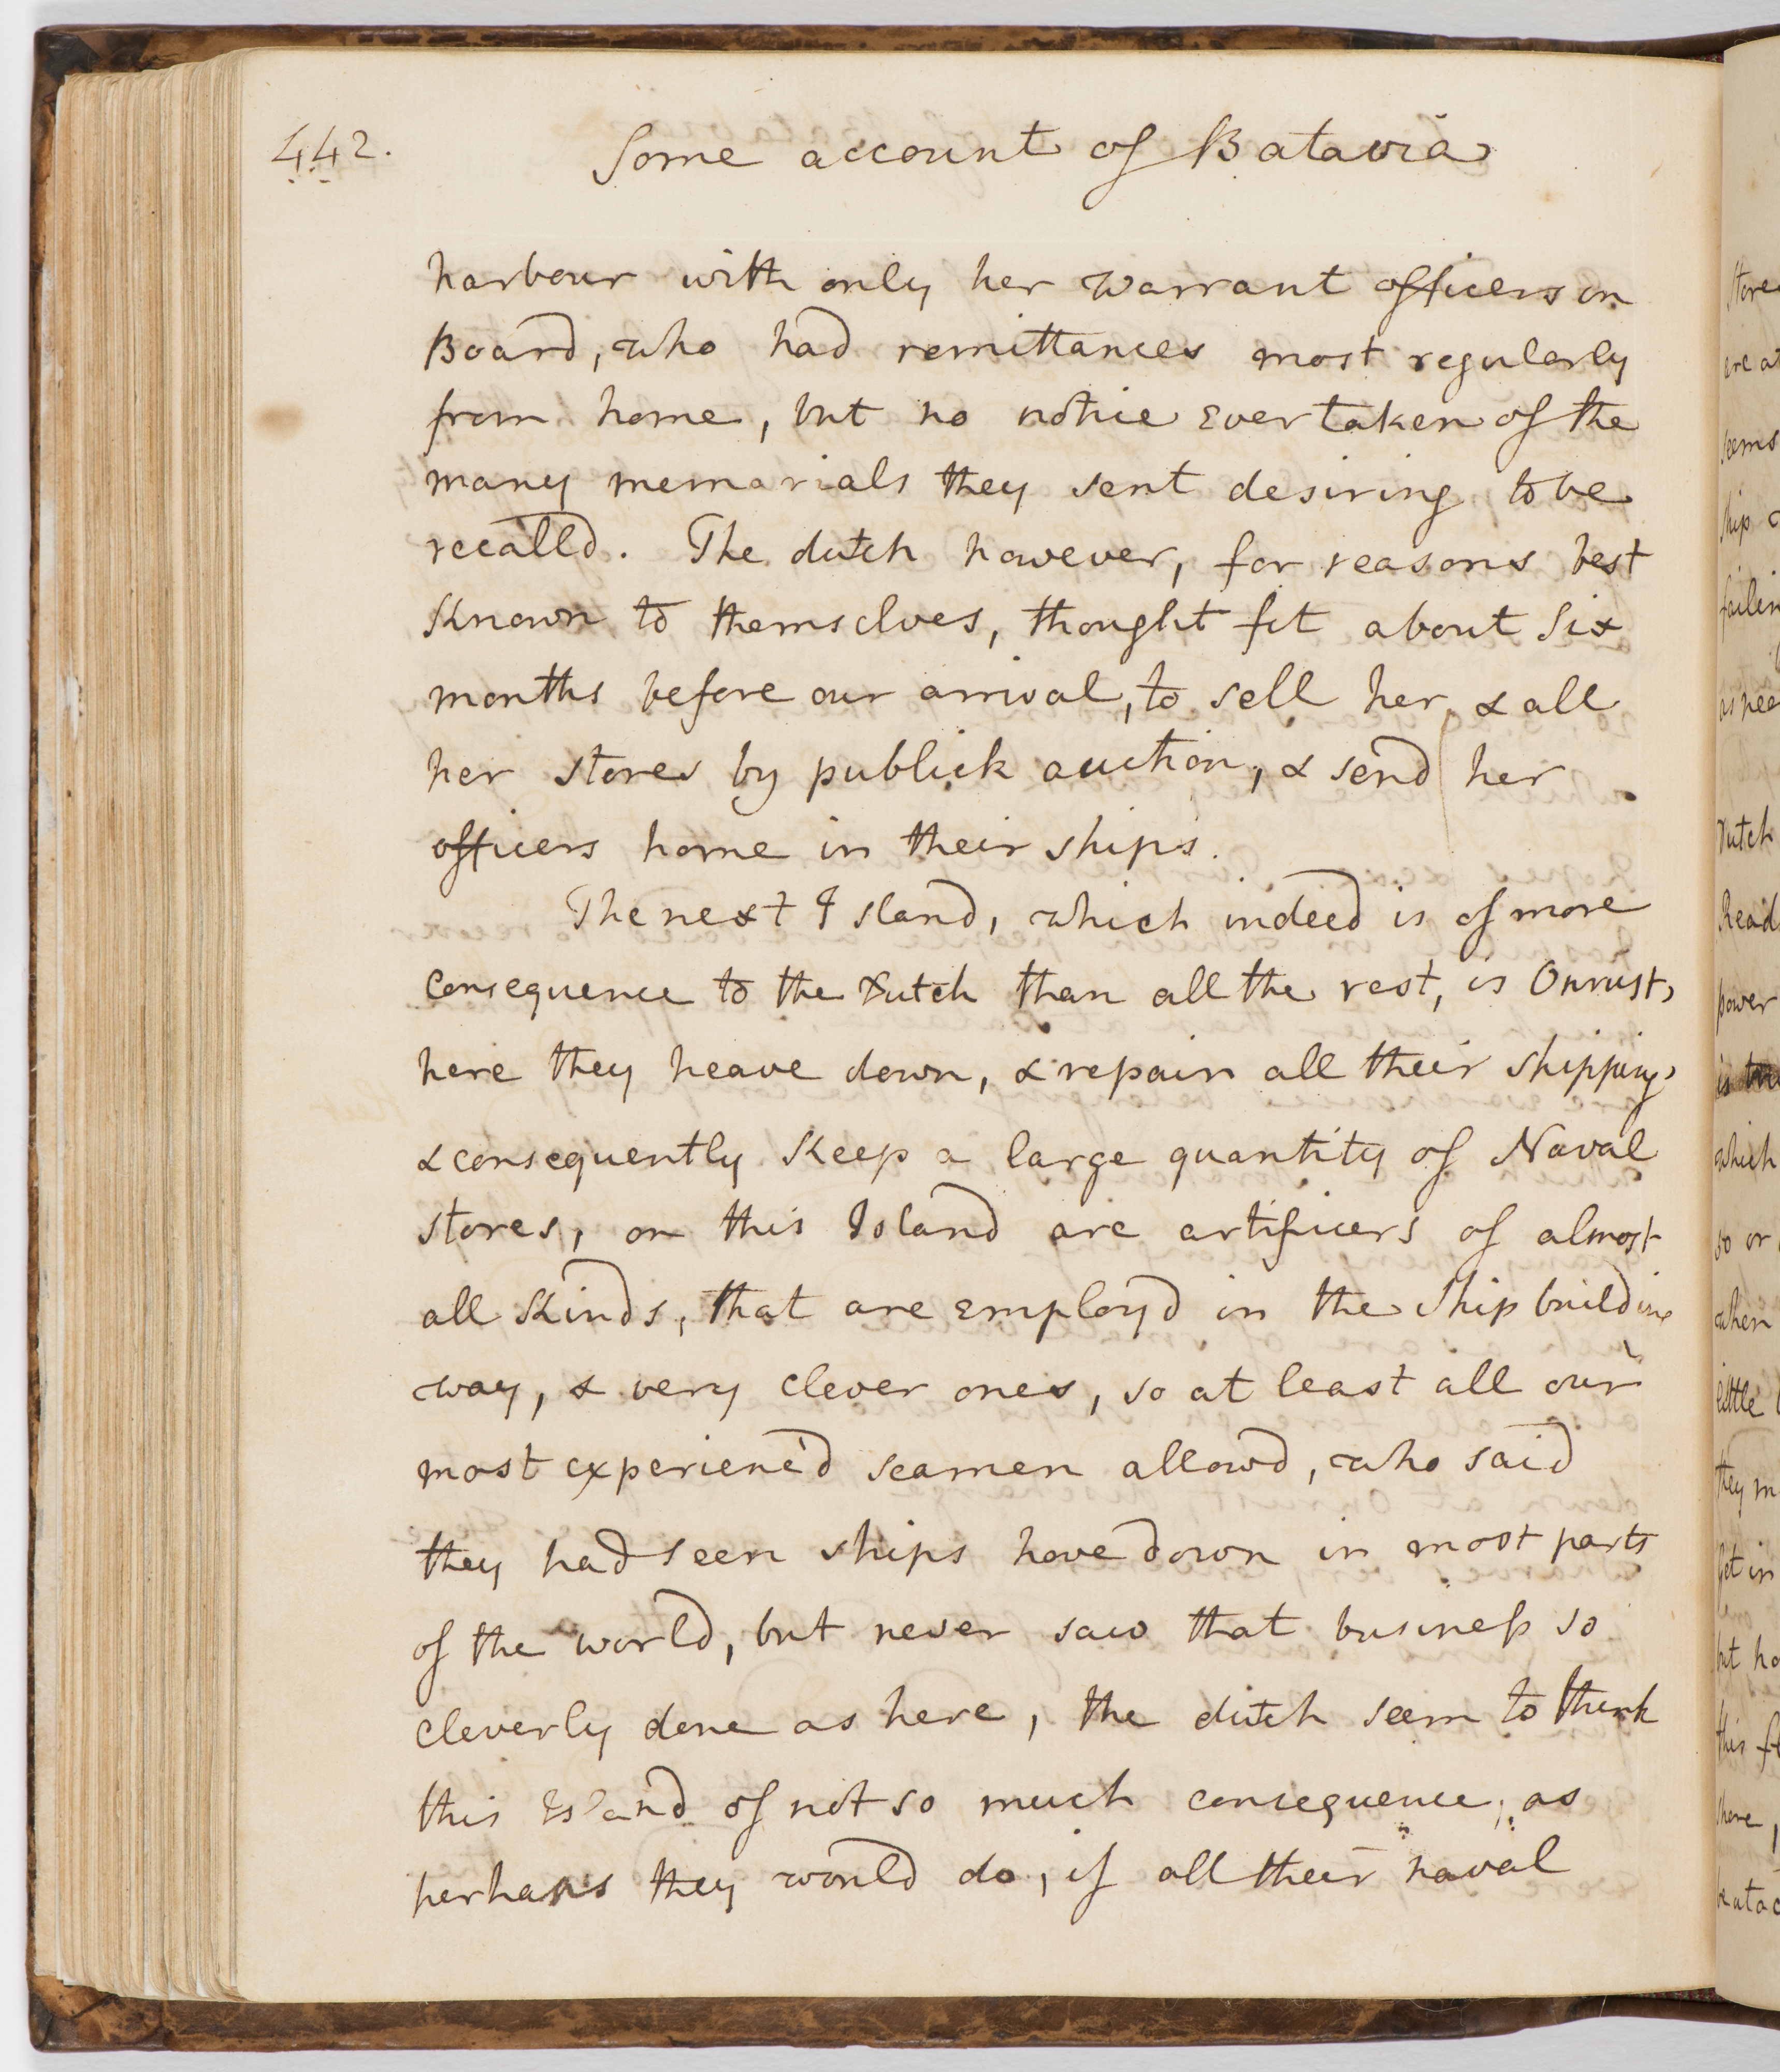 442.
Some account of Batavia
harbour with only her warrant officers on
Board, who had remittances most regularly
from home, but no notice Ever taken of the
many memorials they sent desiring to be
recalld. The dutch however, for reasons best
Known to themselves, thought fit about Six
months before our arrival, to sell her, & all
her stores by publick auction, & send her
officers home in their ships.
The next Island, which indeed is of more
consequence to the Dutch than all the rest, is Onrust,
here they heave down, & repair all their shipping,
& consequently Keep a large quantity of Naval
stores, on this Island are artificers of almost
all Kinds, that are Employ'd in the Ship building
way, & very clever ones, so at least all our
most experienc'd seamen allowd, who said
they had seen ships hove down in most parts
of the world, but never saw that business so
cleverly done as here, the dutch seem to think
this Island of not so much consequence, as
perhaps they would do, if all their naval
Store
are at
seems
ship
failin
as nee
Dutch
Read
power
is the
which
so or
when
little
they m
Get in
but ha
this f
shore,
be atac